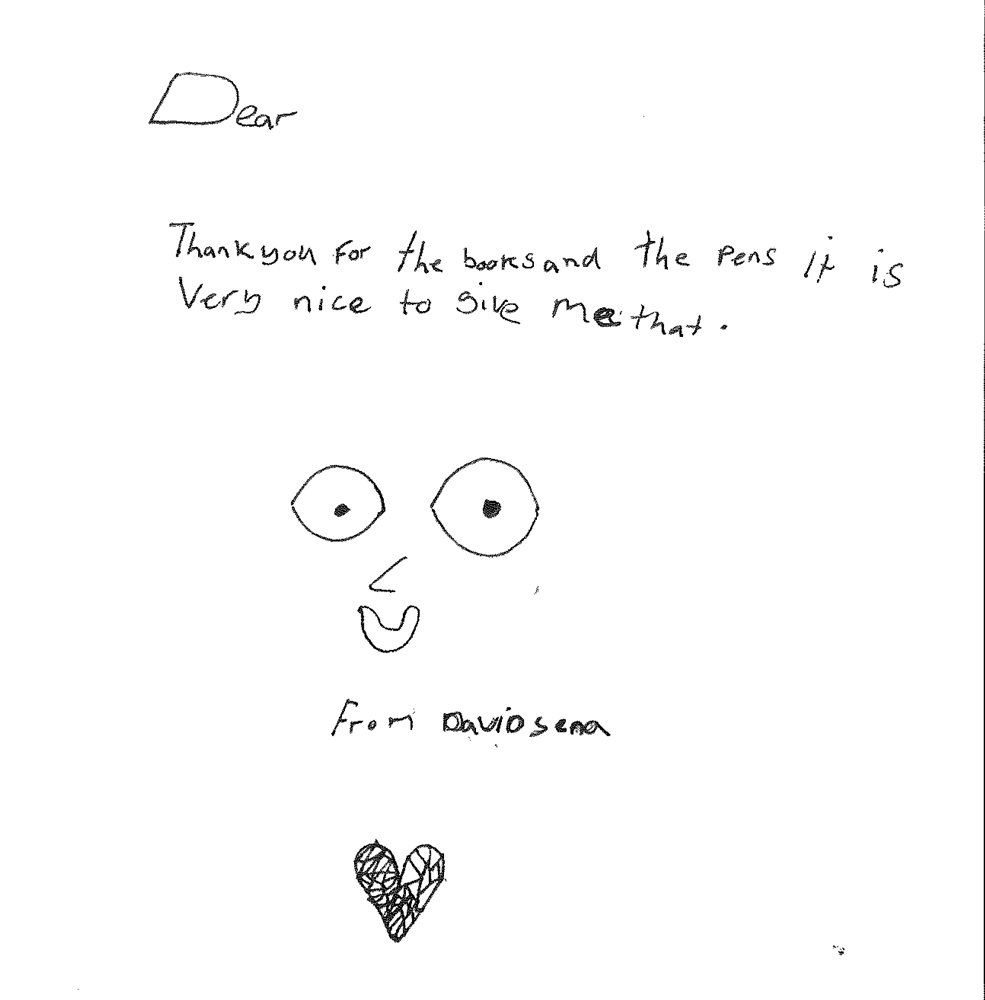 Dear
Thank you for the books and the pens it is
Very nice to give me that.
From Daviosena